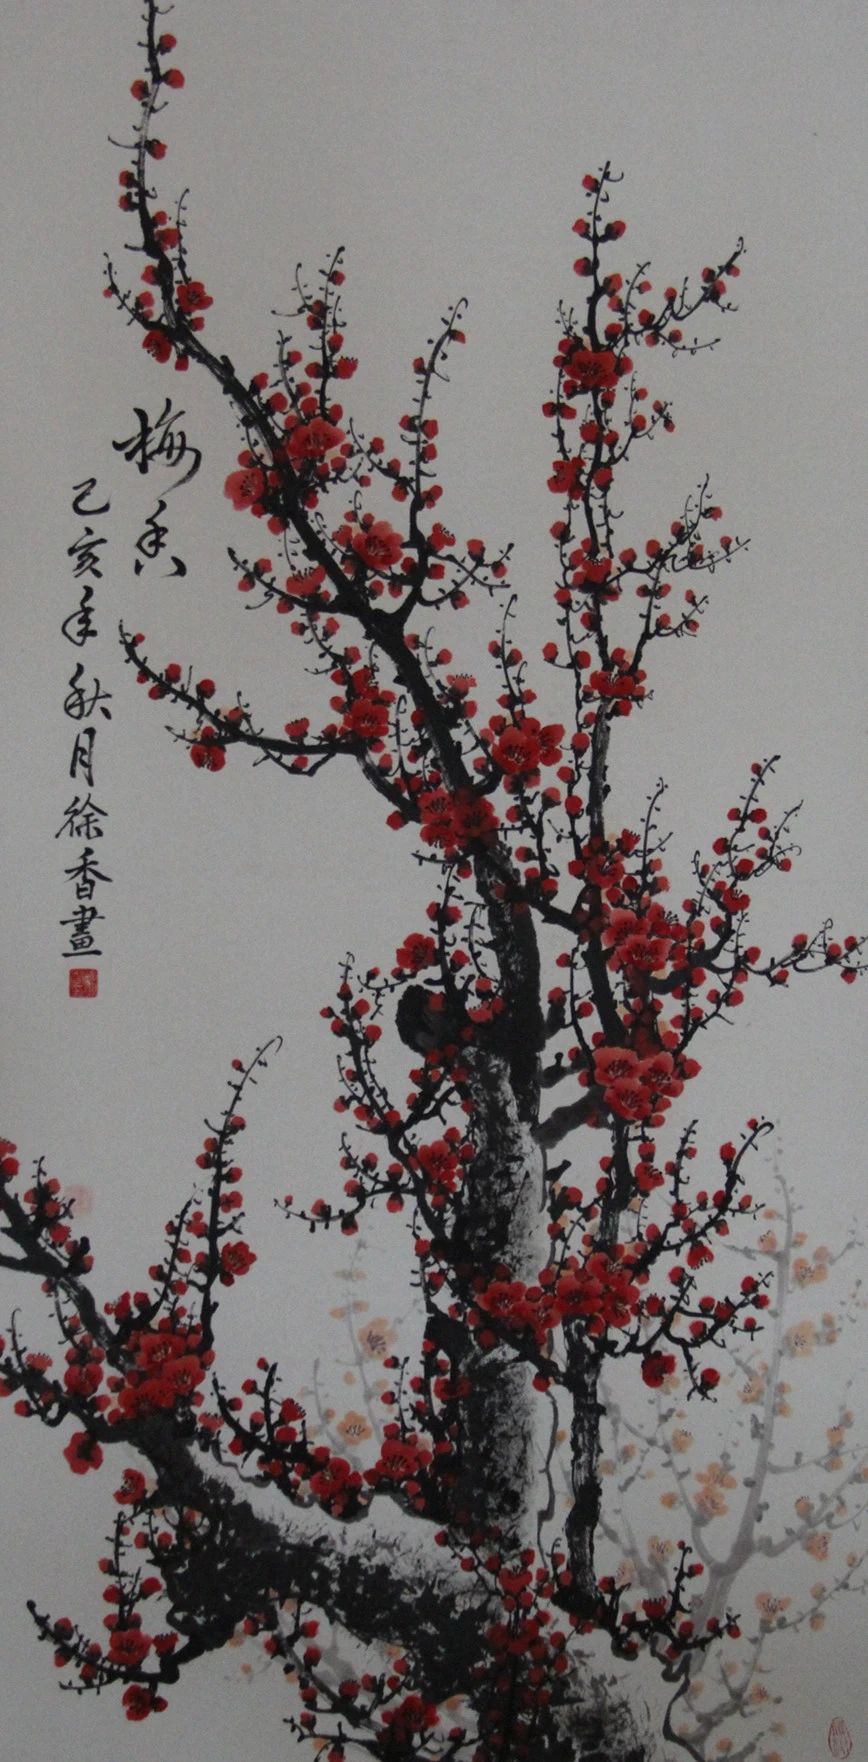 梅香
己亥年秋月徐香畫